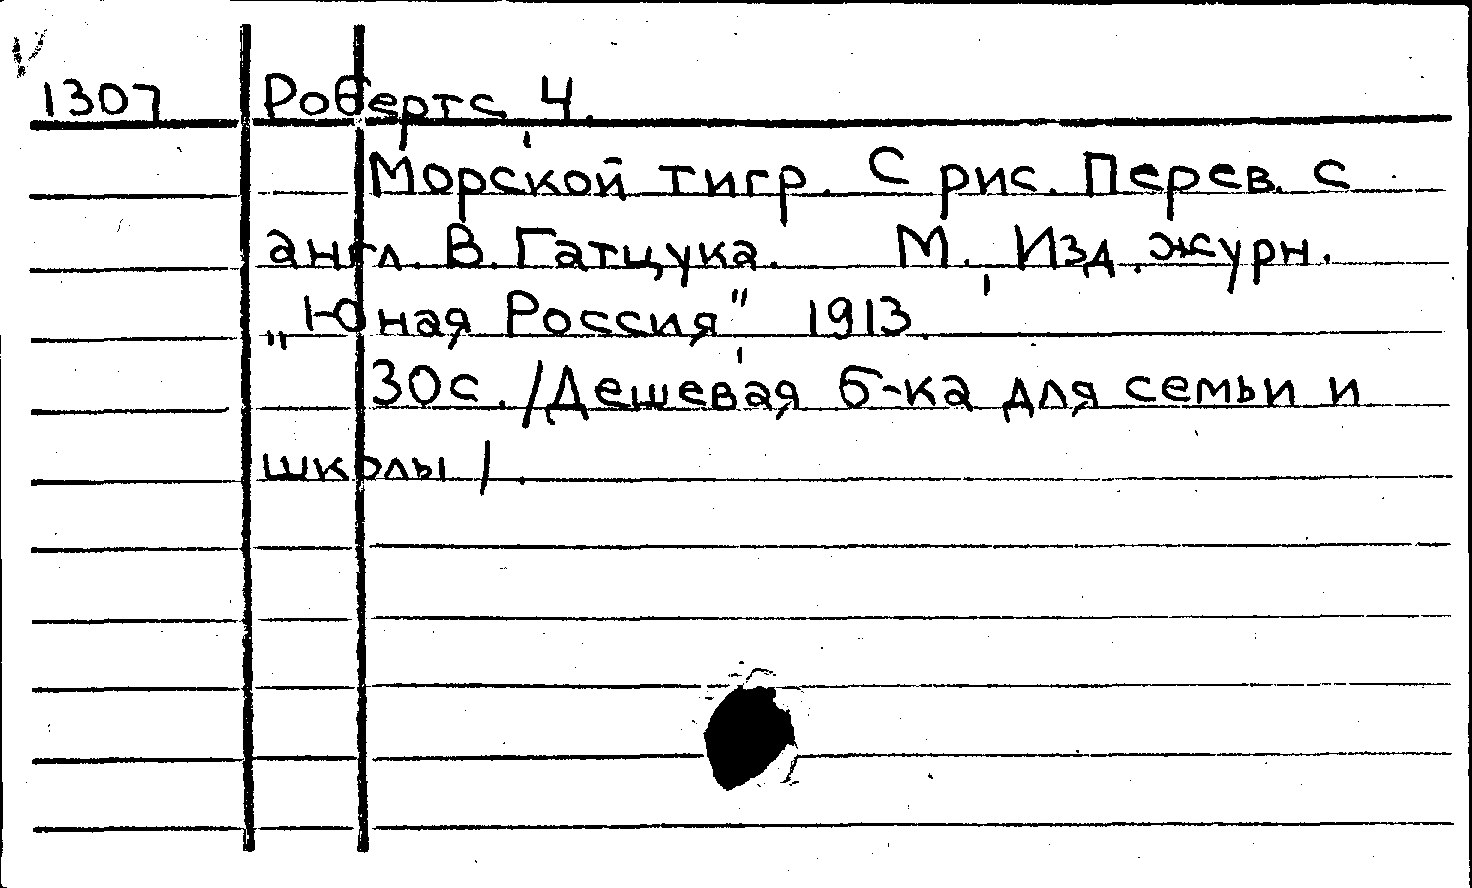 1307 Робертс, Ч.
Морской тигр. С рис. Перев. с
англ. В. Гатцука. М., Изд. журн.
„Юная Россия", 1913.
30с. /Дешевая б-ка для семьи и
школы/.